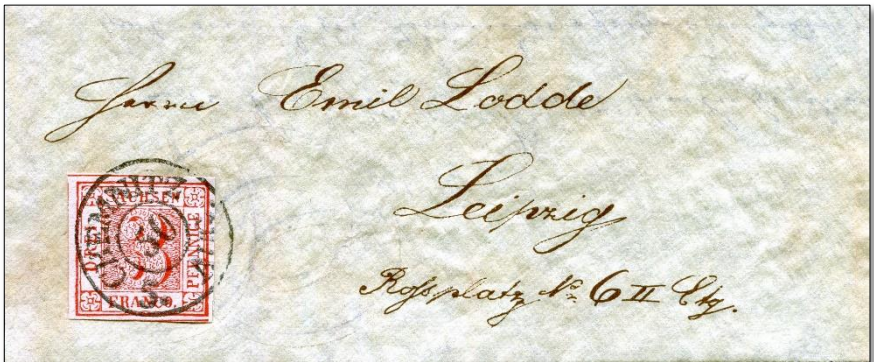 Herrn Emil Lodde
Leipzig
Rossplatz No 6 II Etg.
SACHSEN
DREI
PFENNIGE
FRANCO.
3
CHEMNITZ